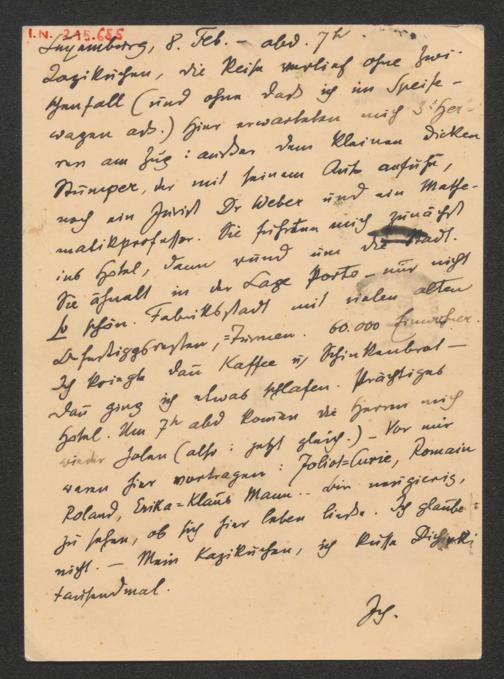 I.N. 215.685
Luxemburg, 8. Feb. – abd. 7h
Kazikuchen, die Reise verlief ohne Zwi-
schenfall (und ohne dass ich im Speise-
wagen ass.) Hier erwarteten mich 3 Her-
ren am Zug: ausser dem kleinen dicken
Stumper, der mit seinem Auto anfuhr,
noch ein Jurist Dr Weber und ein Mathe-
matikprofessor. Sie führten mich zunächst
ins Hotel, dann rund um die Stadt.
Sie ähnelt in der Lage Porto – nur nicht
so schön. Fabriksstadt mit vielen alten
Befestiggsresten, =Türmen. 60.000 Einwohner.
Ich kriegte dan Kaffee u. Schinkenbrot –
dan ging ich etwas schlafen. Prächtiges
Hotel. Um 7h abd komen die Herren mich
wieder holen (also: jetzt gleich.) – Vor mir
waren hier vortragen: Joliot=Curie, Romain
Roland, Erika=Klaus Mann.. bin neugierig,
zu sehen, ob sich hier leben liesse. Ich glaube:
nicht. – Mein Kazikuchen, ich küsse Dich
tausendmal.
Ich.